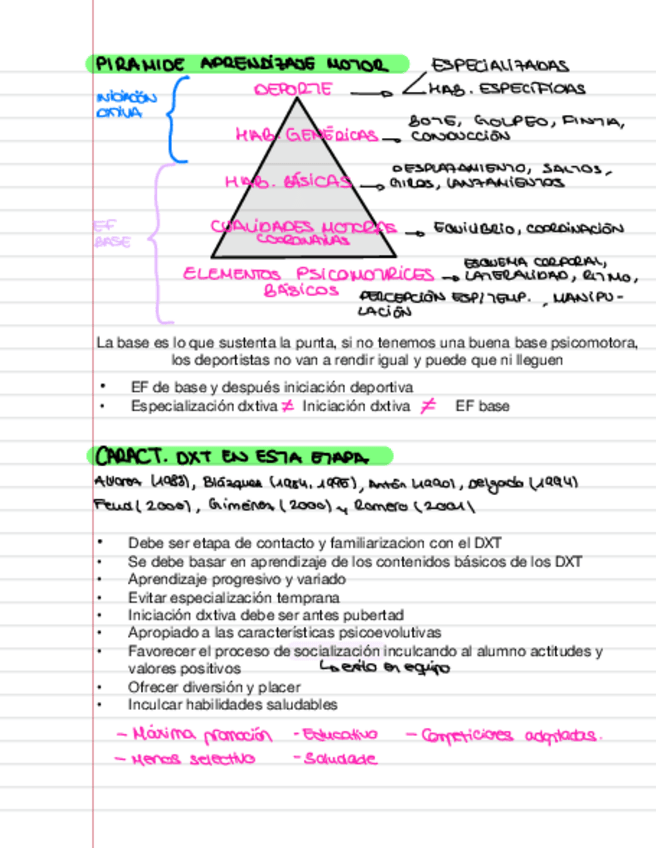 PIRAMIDE APRENDIZAJE MOTOR
ESPECIALIZADAS
DEPORTE → HAB. ESPECÍFICAS
INICIACIÓN DXTIVA
HAB. GENÉRICAS → BOTE, GOLPEO, FINTA,
CONDUCCIÓN
HAB. BÁSICAS → DESPLAZAMIENTO, SALTOS,
GIROS, LANZAMIENTOS
EF BASE
CUALIDADES MOTORAS → EQUILIBRIO, COORDINACIÓN
COORDINATIVAS
ELEMENTOS PSICOMOTRICES BÁSICOS → ESQUEMA CORPORAL,
LATERALIDAD, RITMO,
PERCEPCIÓN ESP/TEMP., MANIPU-
LACIÓN
La base es lo que sustenta la punta, si no tenemos una buena base psicomotora,
los deportistas no van a rendir igual y puede que ni lleguen
• EF de base y después iniciación deportiva
• Especialización dxtiva ≠ Iniciación dxtiva ≠ EF base
CARACT. DXT EN ESTA ETAPA
Alvarez (1983), Blázquez (1984, 1995), Antón (1990), Delgado (1994)
(2000), Giménez (2000) y Romero (2001)
• Debe ser etapa de contacto y familiarizacion con el DXT
• Se debe basar en aprendizaje de los contenidos básicos de los DXT
• Aprendizaje progresivo y variado
• Evitar especialización temprana
• Iniciación dxtiva debe ser antes pubertad
• Apropiado a las características psicoevolutivas
• Favorecer el proceso de socialización inculcando al alumno actitudes y
valores positivos ↳ estilo en equipo
• Ofrecer diversión y placer
• Inculcar habilidades saludables
- Máxima promoción - Educativo - Competiciones adaptadas.
- Menos selectivo - Saludable